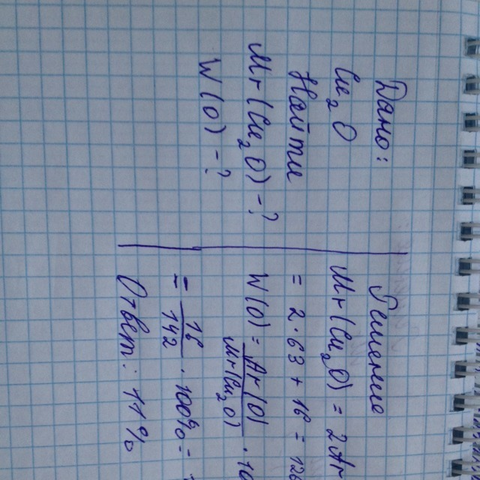 Дано:
Cu₂O
Найти
Mr(Cu₂O) - ?
W(O) - ?
Решение
Mr(Cu₂O) = 2Ar
= 2·63 + 16 = 126
W(O) = Ar(O) / Mr(Cu₂O) · 10
= 16 / 142 · 100% =
Ответ: 11%